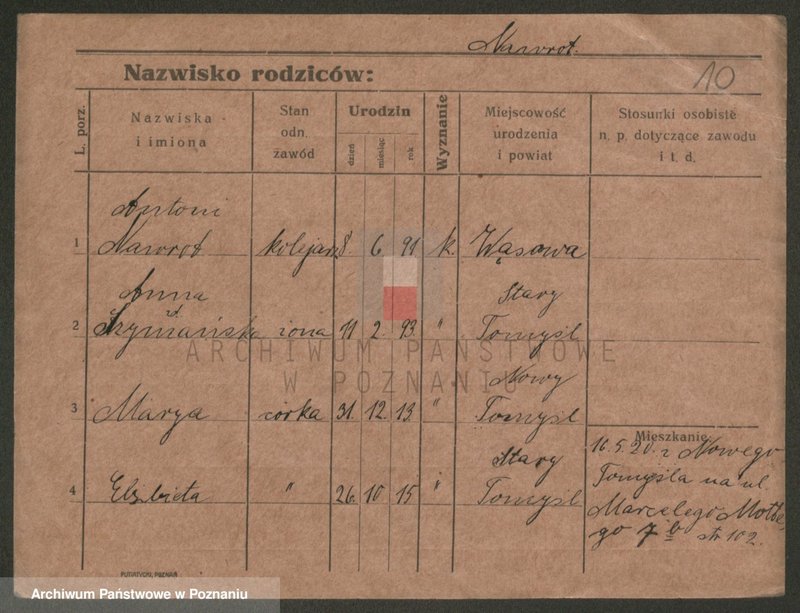 Nawrot.
Nazwisko rodziców:
10
L. porz.
Nazwiska
i imiona
Stan
odn.
zawód
Urodzin
dzień
miesiąc
rok
Wyznanie
Miejscowość
urodzenia
i powiat
Stosunki osobiste
n. p. dotyczące zawodu
i t. d.
Antoni
1 Nawrot kolejarz 8. 6. 91 k. Wąsowa
Anna Stary
2 Szymańska żona 11 2. 93. " Tomyśl
Nowy
3 Marya córka 31. 12. 13. " Tomyśl
Stary
4 Elżbieta " 26. 10 15 " Tomyśl
Mieszkanie
16.5.20. z Nowego
Tomyśla na ul.
Marcelego Motte-
go 7 b str 102.
PUTIATYCKI, POZNAŃ
ARCHIWUM PAŃSTWOWE
W POZNANIU
Archiwum Państwowe w Poznaniu